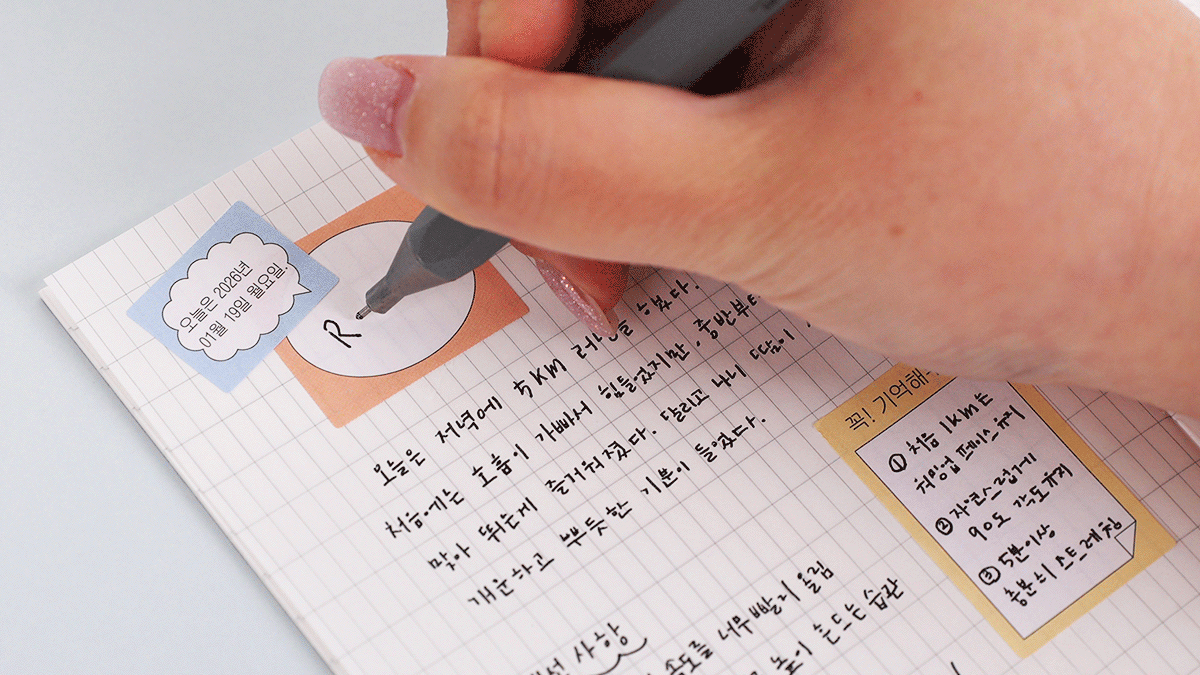 오늘은 2026년
01월 19일 월요일!
R
오늘은 저녁에 5KM 러닝을 하였다.
처음에는 호흡이 가빠서 힘들었지만, 중반부터
맞아 뛰는게 즐거워졌다. 달리고 나니 땀이
개운하고 뿌듯한 기분이 들었다.
사항
속도를 너무 빨게 올림
높이 흔드는 습관
꼭! 기억해
① 처음 1KM는
워밍업 페이스 유지
② 자연스럽게
90도 각도 유지
③ 5분이상
충분히 스트레칭